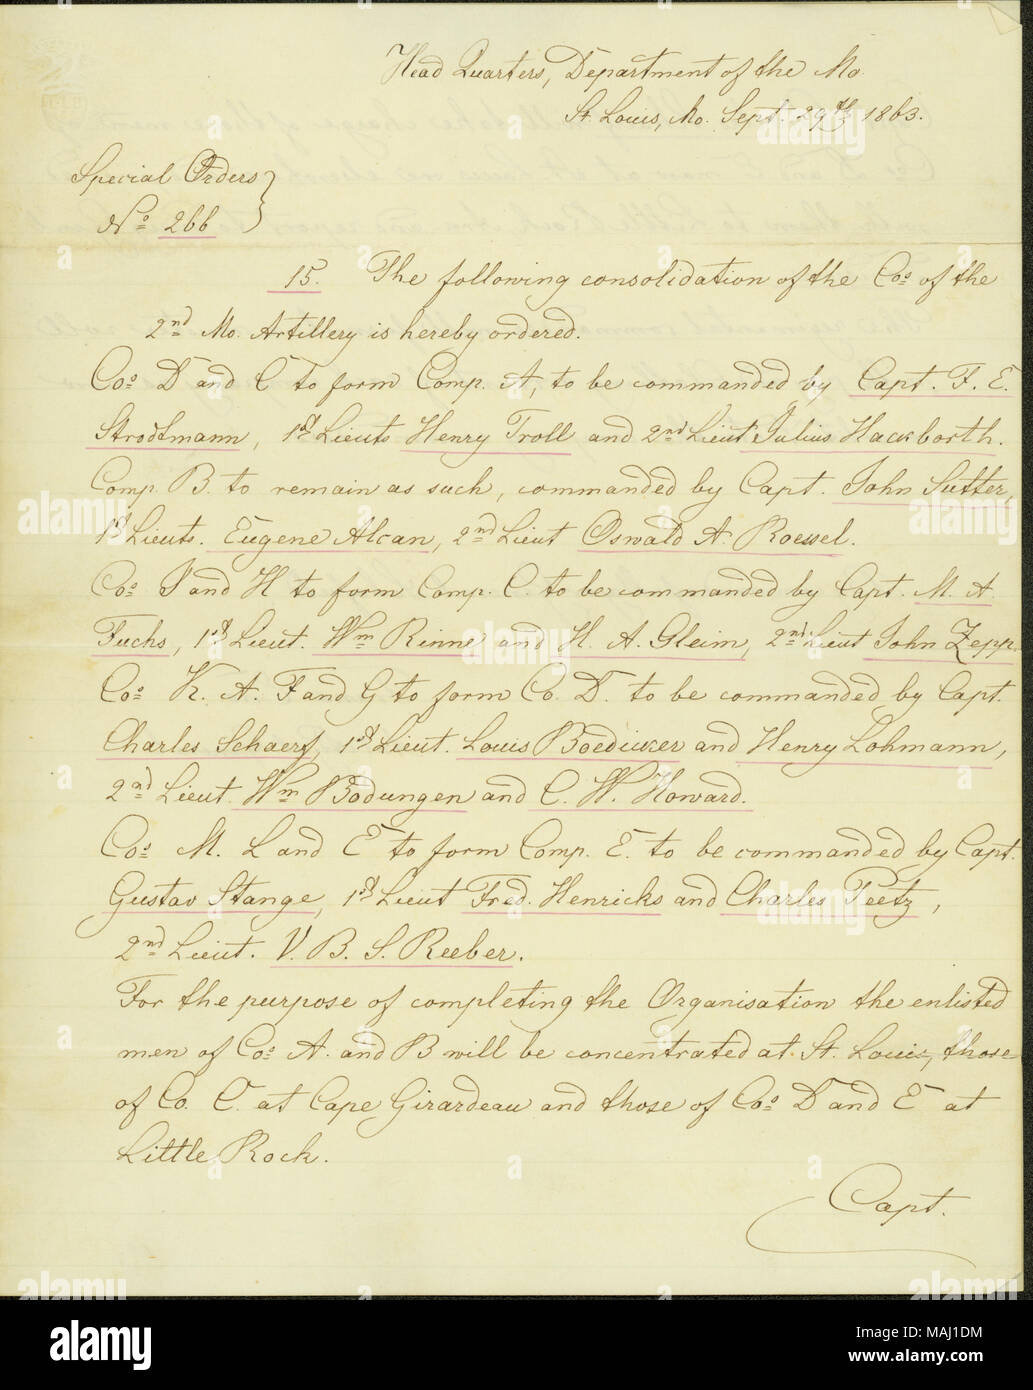 Head Quarters, Department of the Mo.
St. Louis, Mo. Sept. 29th 1863.
Special Orders
No. 266
15. The following consolidation of the Cos. of the
2nd Mo. Artillery is hereby ordered.
Cos. D and C to form Comp. A, to be commanded by Capt. F. E.
Strodtmann, 1st Lieuts Henry Troll and 2nd Lieut Julius Hackborth.
Comp. B. to remain as such, commanded by Capt. John Sutter,
1st Lieuts. Eugene Alcan, 2nd Lieut Oswald A. Roessel.
Cos. I and H to form Comp. C. to be commanded by Capt. M. A
Fuchs, 1st Lieut. Wm Rinne and H. A. Gleim, 2nd Lieut John Zepp.
Cos. K. A. F and G to form Co. D. to be commanded by Capt.
Charles Schaerf, 1st Lieut. Louis Boedicker and Henry Lohmann,
2nd Lieut. Wm Bodungen and C. W. Howard.
Cos. M. L and E to form Comp. E. to be commanded by Capt.
Gustav Stange, 1st Lieut Fred. Henricks and Charles Peetz,
2nd Lieut. V. B. S. Reeber.
For the purpose of completing the Organisation the enlisted
men of Cos. A. and B will be concentrated at St. Louis, those
of Co. C. at Cape Girardeau and those of Cos. D and E at
Little Rock.
Capt.
alamy
Image ID: MAJ1DM
www.alamy.com